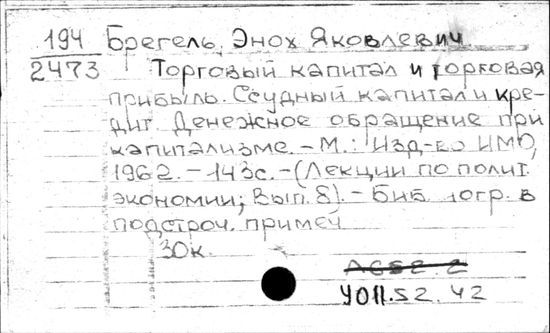 194 Брегель, Энох Яковлевич
2473 Торговый капитал и торговая
прибыль. Ссудный капитал и кре-
дит. Денежное обращение при
капитализме. - М.: Изд-во ИМО,
1962. - 143с. - (Лекции по полит.
экономии; Вып. 8). - Библиогр. в
подстроч. примеч
30к.
У011.52.42